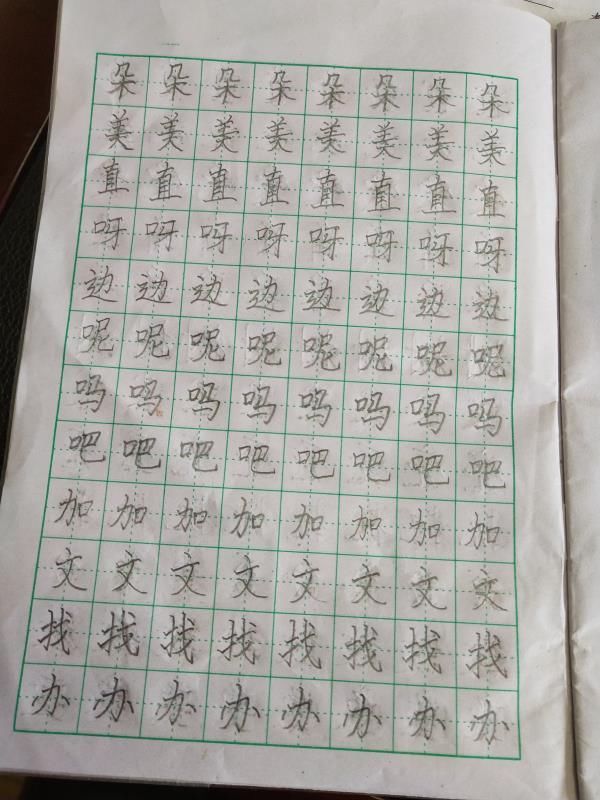 朵朵朵朵朵朵朵朵
美美美美美美美美
直直直直直直直直
呀呀呀呀呀呀呀呀
边边边边边边边边
呢呢呢呢呢呢呢呢
吗吗吗吗吗吗吗吗
吧吧吧吧吧吧吧吧
加加加加加加加加
文文文文文文文文
找找找找找找找找
办办办办办办办办